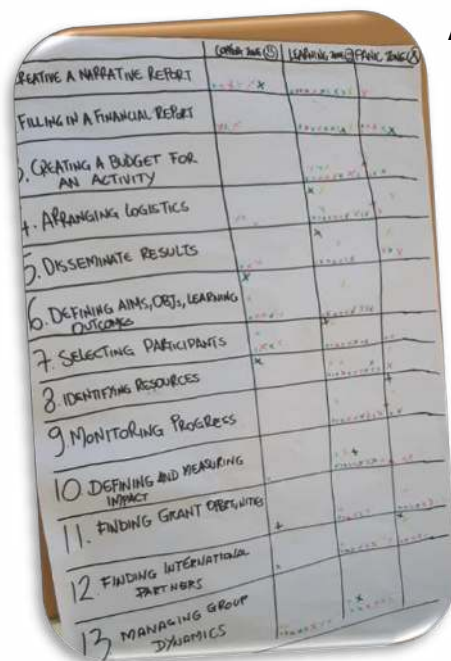 COMFORT ZONE LEARNING ZONE PANIC ZONE
CREATIVE A NARRATIVE REPORT
FILLING IN A FINANCIAL REPORT
3. CREATING A BUDGET FOR
AN ACTIVITY
4. ARRANGING LOGISTICS
5. DISSEMINATE RESULTS
6. DEFINING AIMS, OBJs, LEARNING
OUTCOMES
7. SELECTING PARTICIPANTS
8. IDENTIFYING RESOURCES
9. MONITORING PROGRESS
10. DEFINING AND MEASURING
IMPACT
11. FINDING GRANT OPPORTUNITIES
12. FINDING INTERNATIONAL
PARTNERS
13 MANAGING GROUP
DYNAMICS